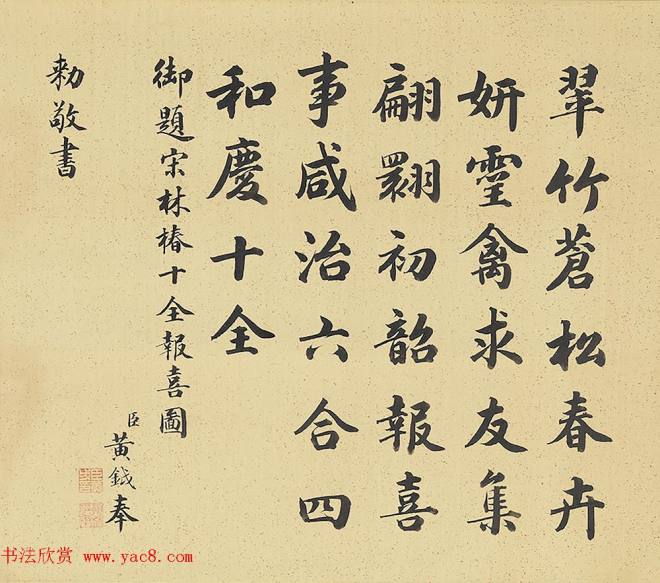 翠竹蒼松春卉
妍靈禽求友集
翩翾初韶報喜
事咸治六合四
和慶十全
御題宋林椿十全報喜圖
臣黄鉞奉
勅敬書
书法欣赏 www.yac8.com